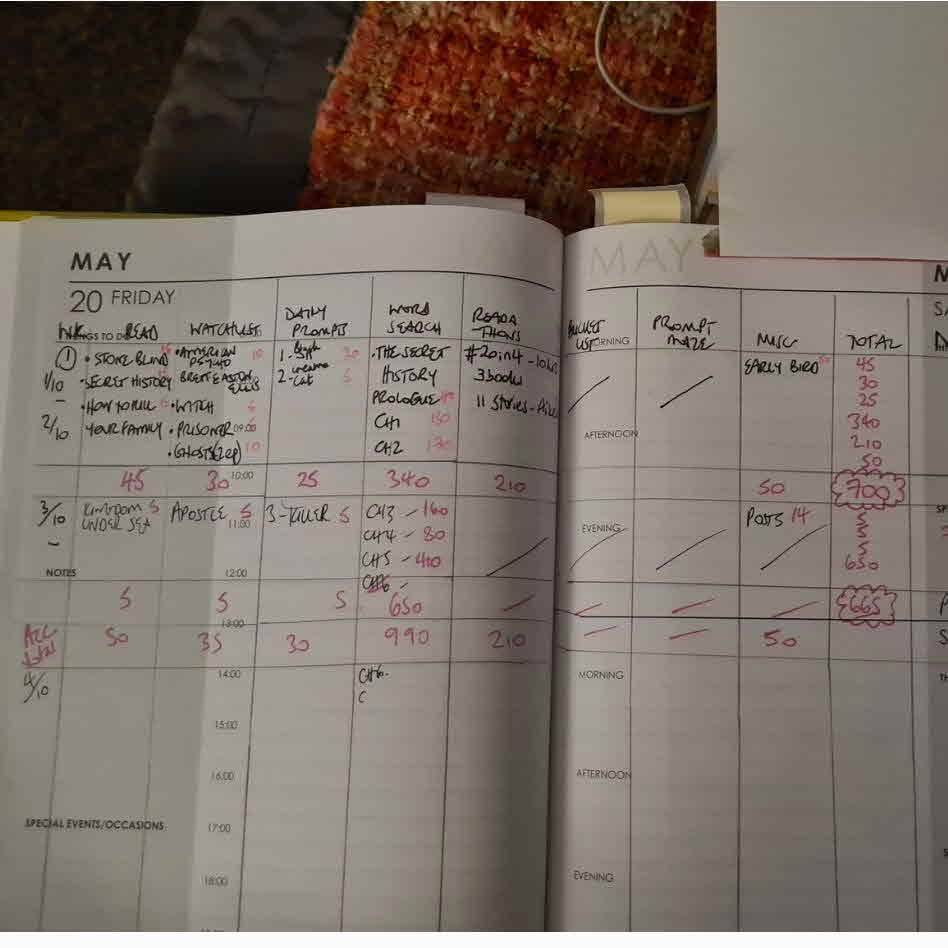 MAY
20 FRIDAY
THINGS TO DO
READ
WATCHLIST
DAILY
PROMPTS
WORD
SEARCH
READA
THONS
1
1/10
-
2/10
• STONE BLIND
• SECRET HISTORY
• HOW TO KILL
YOUR FAMILY
• AMERICAN 10
PSYCHO
BRET EASTON
ELLIS
• WITCH 5
• PRISONER
• GHOSTS (2ep) 10
09:00
1 -
2 -
Cat 5
• THE SECRET
HISTORY
PROLOGUE
CH1 130
CH2
#20in4
3 books
11 Stories
10:00
45 30 25 340 210
3/10
-
KINGDOM 5
UNDER SEA
APOSTLE 5
3 - KILLER 5
CH3 - 160
CH4 - 80
CH5 - 410
CH6 -
11:00
NOTES
12:00
5 5 5 650
13:00
Acc
total
50 35 30 990 210
4/10
CH6.
C
14:00
15:00
16:00
SPECIAL EVENTS/OCCASIONS
17:00
18:00
MAY
BUCKET
LIST
MORNING
PROMPT
MAZE
MISC
TOTAL
EARLY BIRD 50
45
30
25
340
210
50
AFTERNOON
50 700
EVENING
POSTS 14
5
5
5
650
665
50
MORNING
AFTERNOON
EVENING